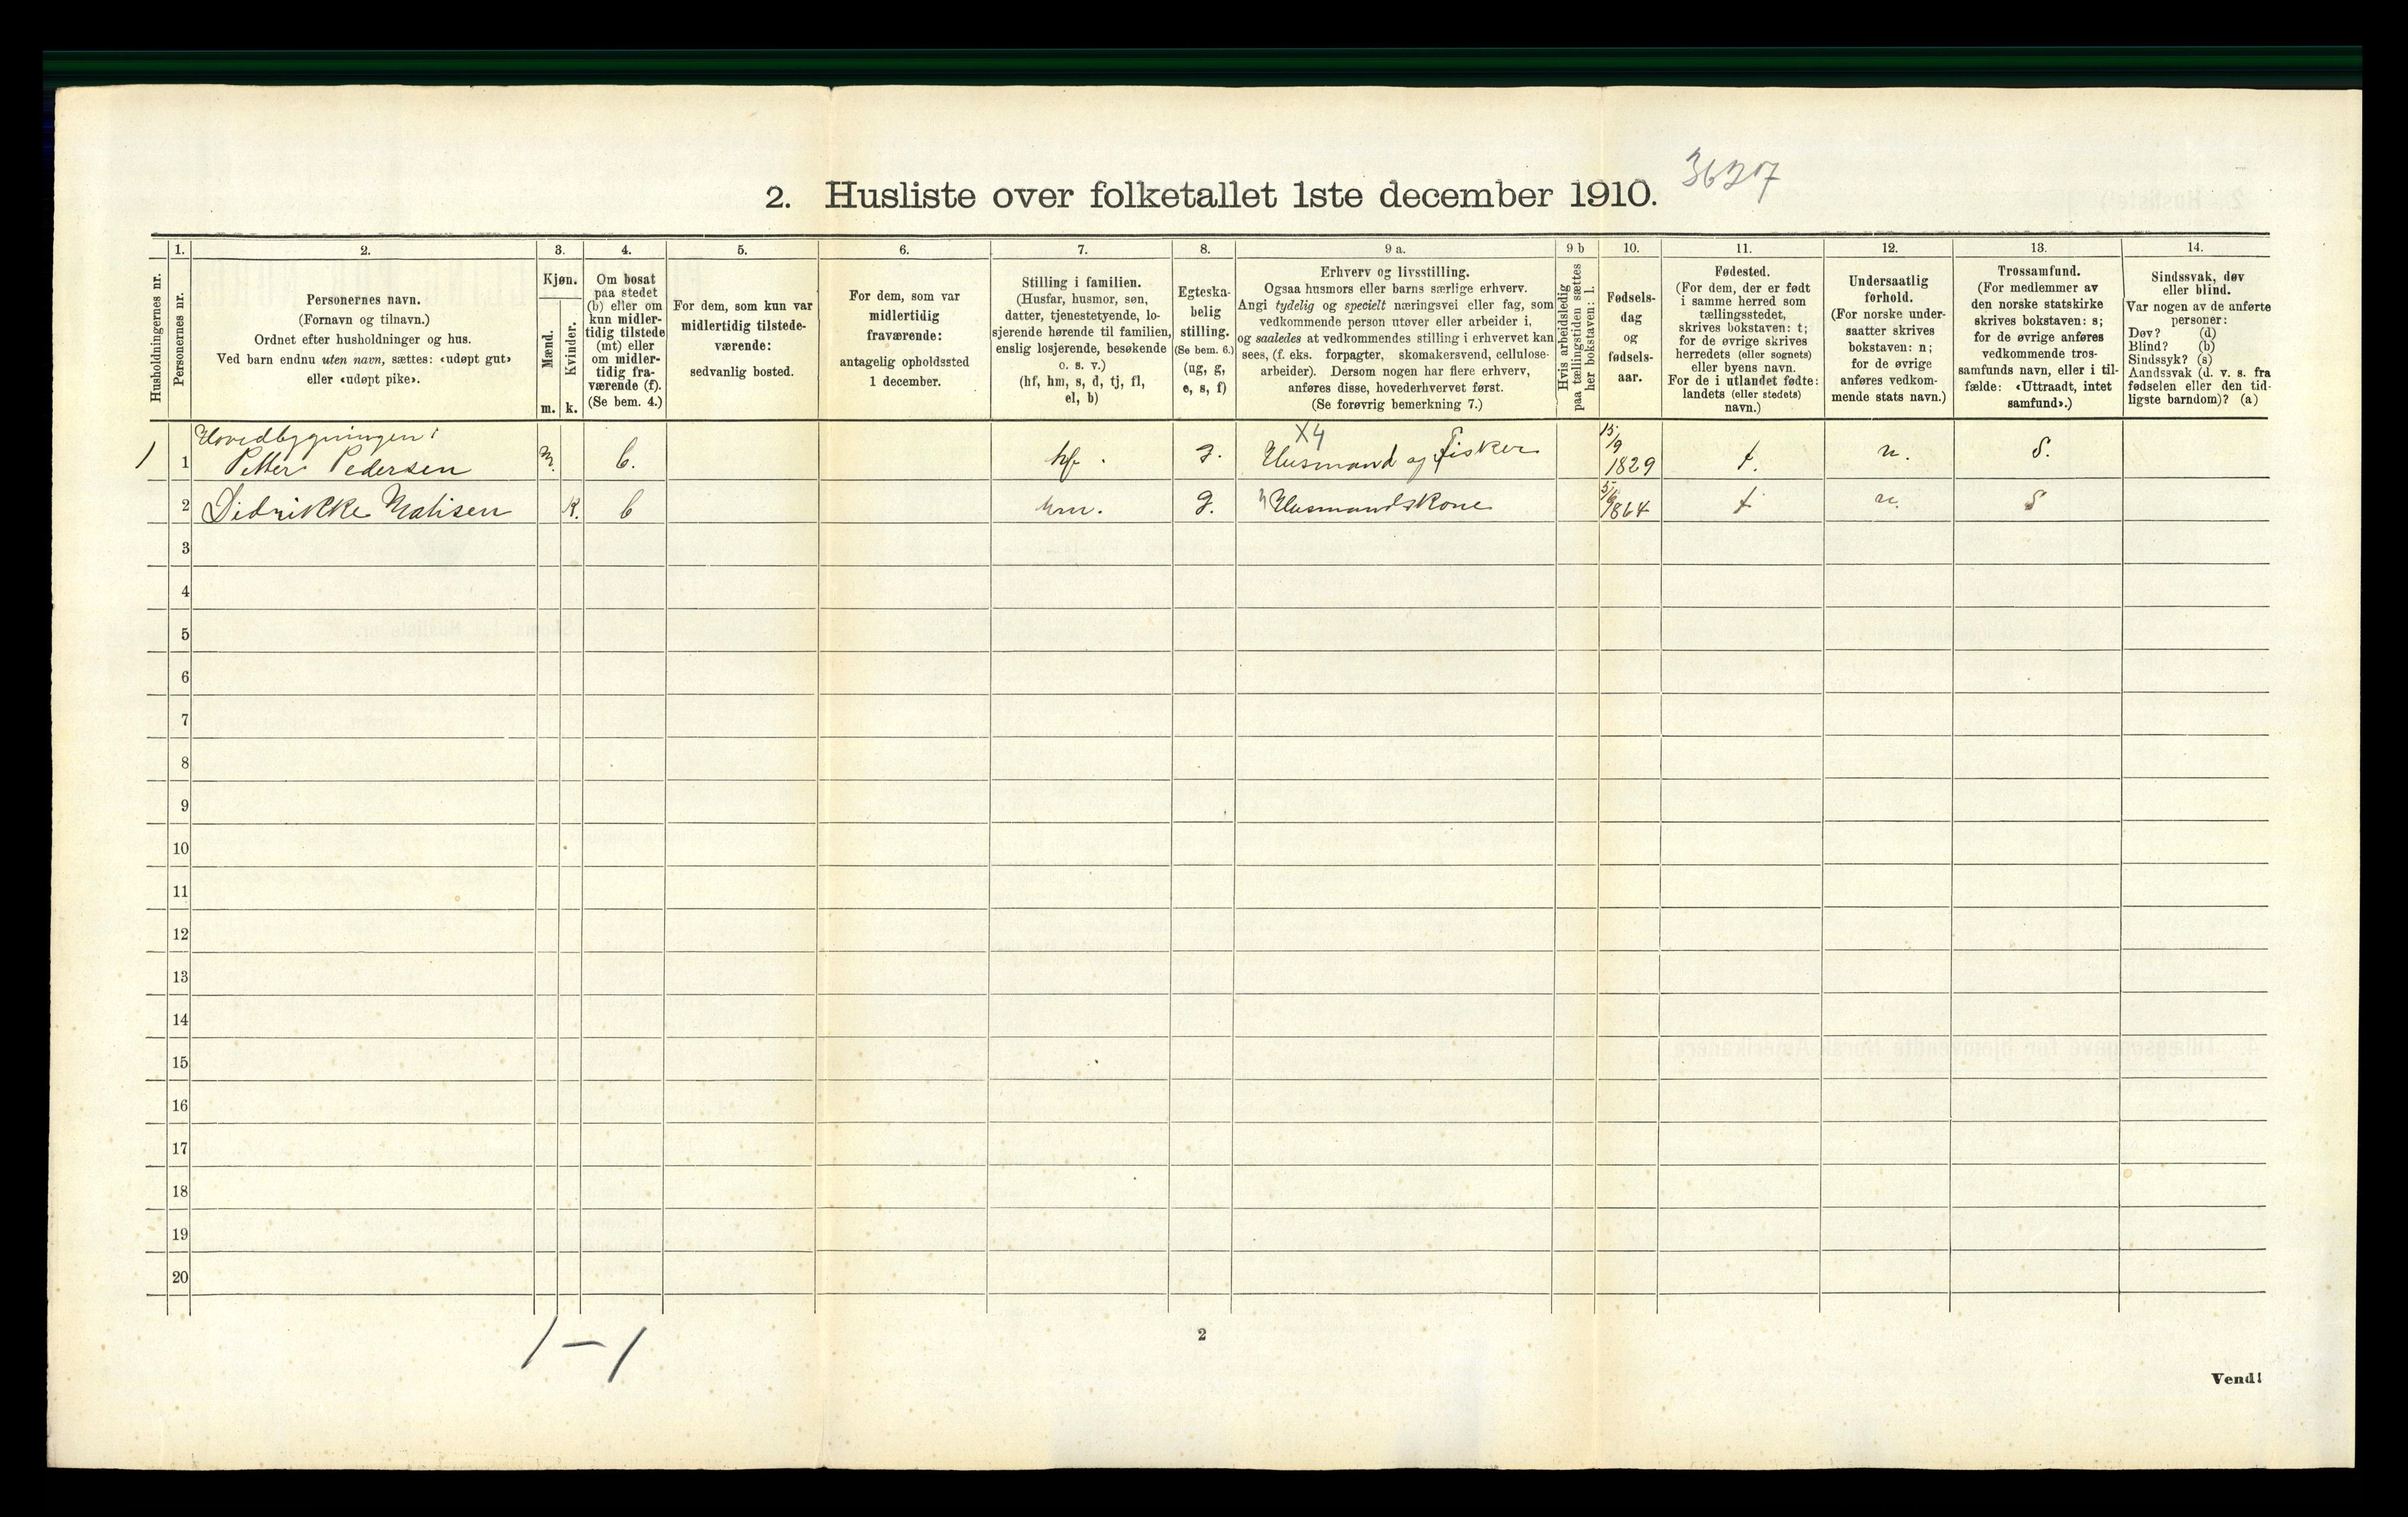 2. Husliste over folketallet 1ste december 1910.
3627
Husholdningernes nr.
1.
Personernes nr.
2.
Personernes navn.
(Fornavn og tilnavn.)
Ordnet efter husholdninger og hus.
Ved barn endnu uten navn, sættes: «udøpt gut»
eller «udøpt pike».
3.
Kjøn.
Mænd.
Kvinder.
m. k.
4.
Om bosat
paa stedet
(b) eller om
kun midler-
tidig tilstede
(mt) eller
om midler-
tidig fra-
værende (f).
(Se bem. 4.)
5.
For dem, som kun var
midlertidig tilstede-
værende:
sedvanlig bosted.
6.
For dem, som var
midlertidig
fraværende:
antagelig opholdssted
1 december.
7.
Stilling i familien.
(Husfar, husmor, søn,
datter, tjenestetyende, lo-
sjerende hørende til familien,
enslig losjerende, besøkende
o. s. v.)
(hf, hm, s, d, tj, fl,
el, b)
8.
Egteska-
belig
stilling.
(Se bem. 6.)
(ug, g,
e, s, f)
9 a.
Erhverv og livsstilling.
Ogsaa husmors eller barns særlige erhverv.
Angi tydelig og specielt næringsvei eller fag, som
vedkommende person utøver eller arbeider i,
og saaledes at vedkommendes stilling i erhvervet kan
sees, (f. eks. forpagter, skomakersvend, cellulose-
arbeider). Dersom nogen har flere erhverv,
anføres disse, hovederhvervet først.
(Se forøvrig bemerkning 7.)
9 b
Hvis arbeidsledig
paa tællingstiden sættes
her bokstaven: l.
10.
Fødsels-
dag
og
fødsels-
aar.
11.
Fødested.
(For dem, der er født
i samme herred som
tællingsstedet,
skrives bokstaven: t;
for de øvrige skrives
herredets (eller sognets)
eller byens navn.
For de i utlandet fødte:
landets (eller stedets)
navn.)
12.
Undersaatlig
forhold.
(For norske under-
saatter skrives
bokstaven: n;
for de øvrige
anføres vedkom-
mende stats navn.)
13.
Trossamfund.
(For medlemmer av
den norske statskirke
skrives bokstaven: s;
for de øvrige anføres
vedkommende tros-
samfunds navn, eller i til-
fælde: «Uttraadt, intet
samfund».)
14.
Sindssvak, døv
eller blind.
Var nogen av de anførte
personer:
Døv? (d)
Blind? (b)
Sindssyk? (s)
Aandssvak (d. v. s. fra
fødselen eller den tid-
ligste barndom)? (a)
Hovedbygningen:
X4
1 1 Petter Pedersen m. b. hf. g. Husmand og Fisker 15/9 1829 t. n. S.
2 Didrikke Matisen K. b hm. g. Husmandskone 5/6 1864 t n. S
3
4
5
6
7
8
9
10
11
12
13
14
15
16
17
18
19
20
1 – 1
2
Vend!